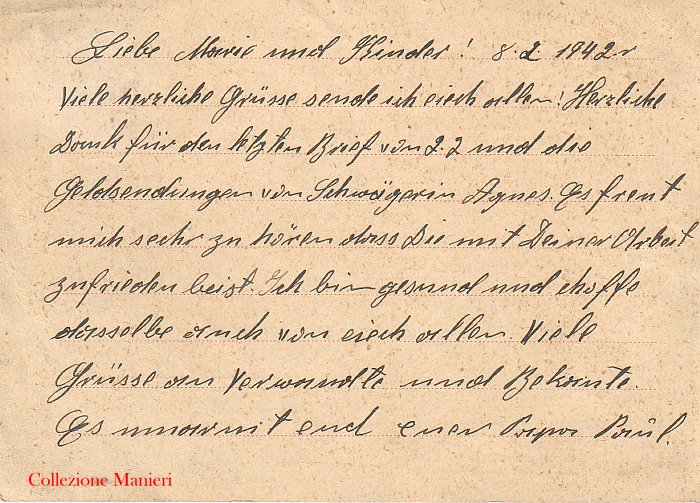 Liebe Marie und Kinder! 8.2.1942
Viele herzliche Grüsse sende ich eiech allen! Herzliche
Dank für den letzten Brief von 2.2 und die
Geldsendungen von Schwägerin Agnes. Es freut
mich sechr zu hören dass Die mit Deiner Arbeit
zufrieden beist. Ich bin gesund und choffe
dasselbe auch von eiech allen. Viele
Grüsse an Verwandte und Bekante.
Es umarmt eud euer Papa Paul.
Collezione Manieri